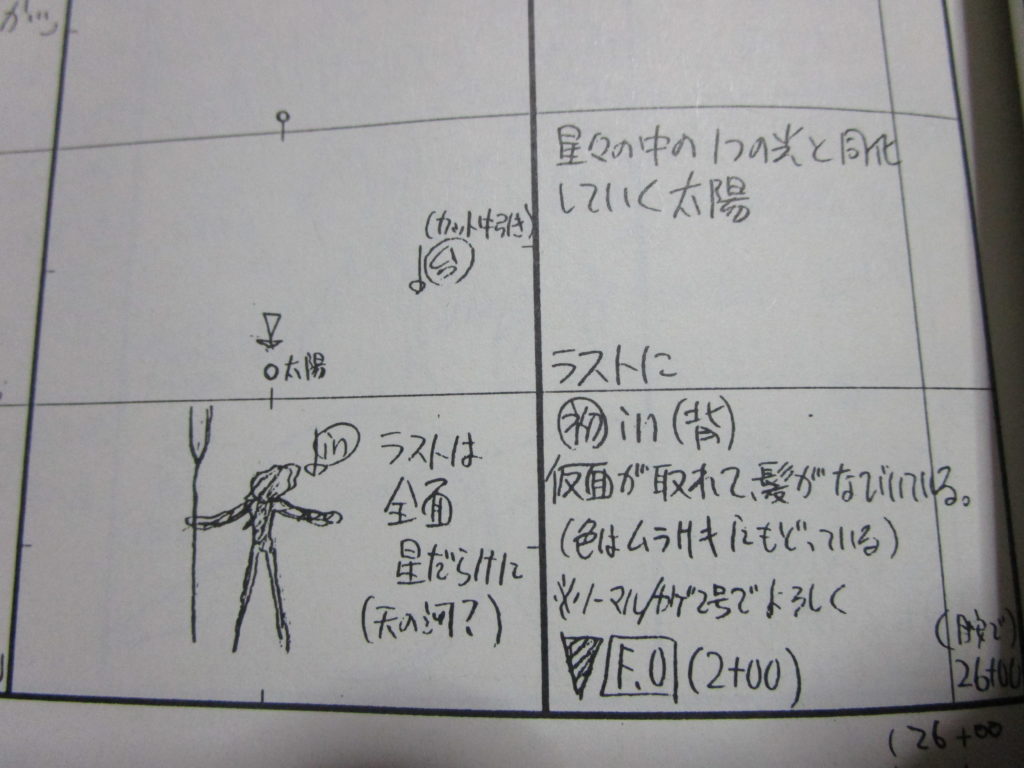 星々の中の1つの光と同化
していく太陽
(カット中引き)
台
太陽
ラストに
in
ラストは
全面
星だらけに
(天の河?)
初 in (背)
仮面が取れて、髪がなびいている。
(色はムラサキにもどっている)
※ノーマル/カゲ2号でよろしく
F.O (2+00)
26+00
(26+00